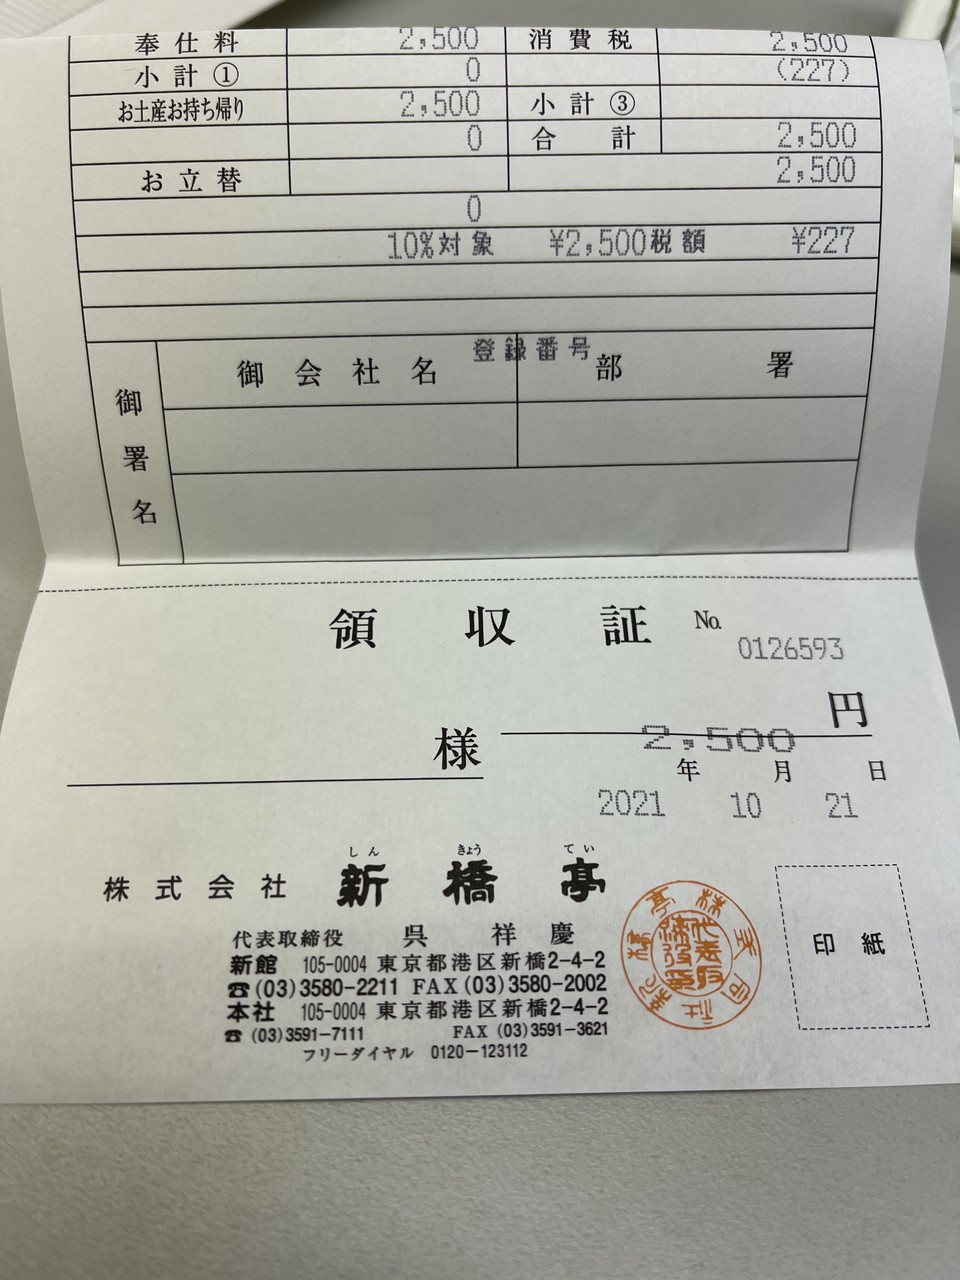 奉仕料 2,500 消費税 2,500
小計① 0 (227)
お土産お持ち帰り 2,500 小計③
0 合計 2,500
お立替 2,500
0
10%対象 ¥2,500税額 ¥227
登録番号
御会社名 部署
御署名
領収証 No.
0126593
様 2,500 円
年 月 日
2021 10 21
しん きょう てい
株式会社 新橋亭
代表取締役 呉祥慶
新館 105-0004 東京都港区新橋2-4-2
☎(03)3580-2211 FAX(03)3580-2002
本社 105-0004 東京都港区新橋2-4-2
☎(03)3591-7111 FAX(03)3591-3621
フリーダイヤル 0120-123112
印紙